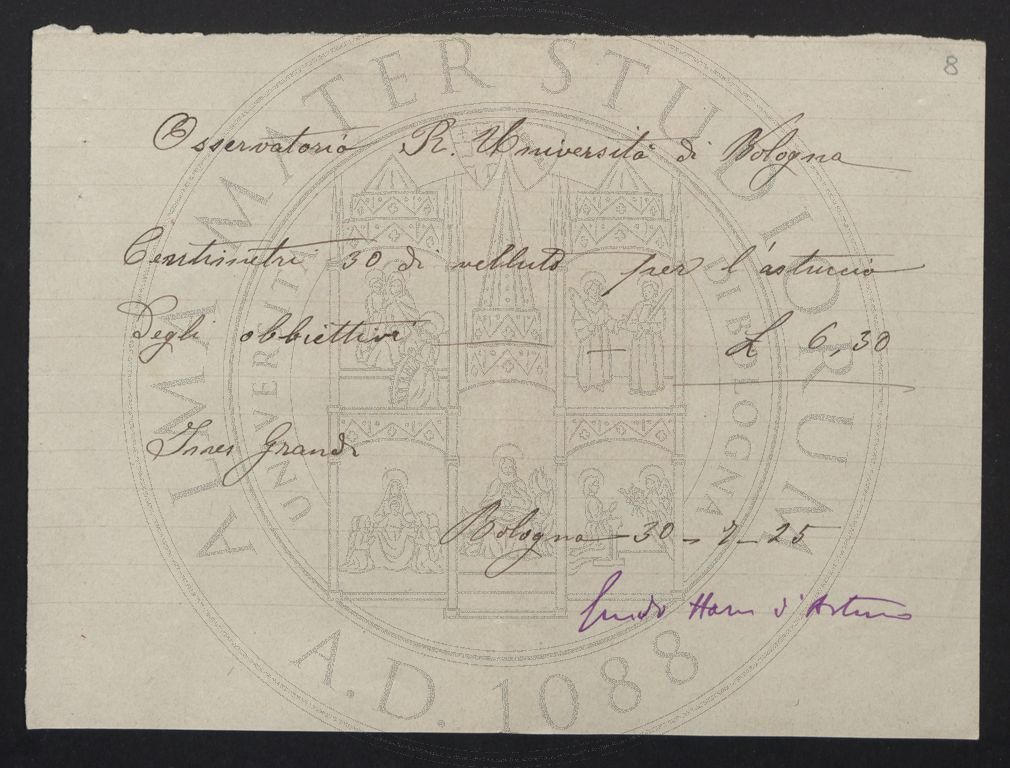 8
Osservatorio R. Università di Bologna
Centimetri 30 di velluto per l'astuccio
degli obbiettivi — L 6,30
Ines Grandi
Bologna - 30 - - 25
Guido Horn d'Arturo
ALMA MATER STUDIORUM
UNIVERSITÀ DI BOLOGNA
A.D. 1088